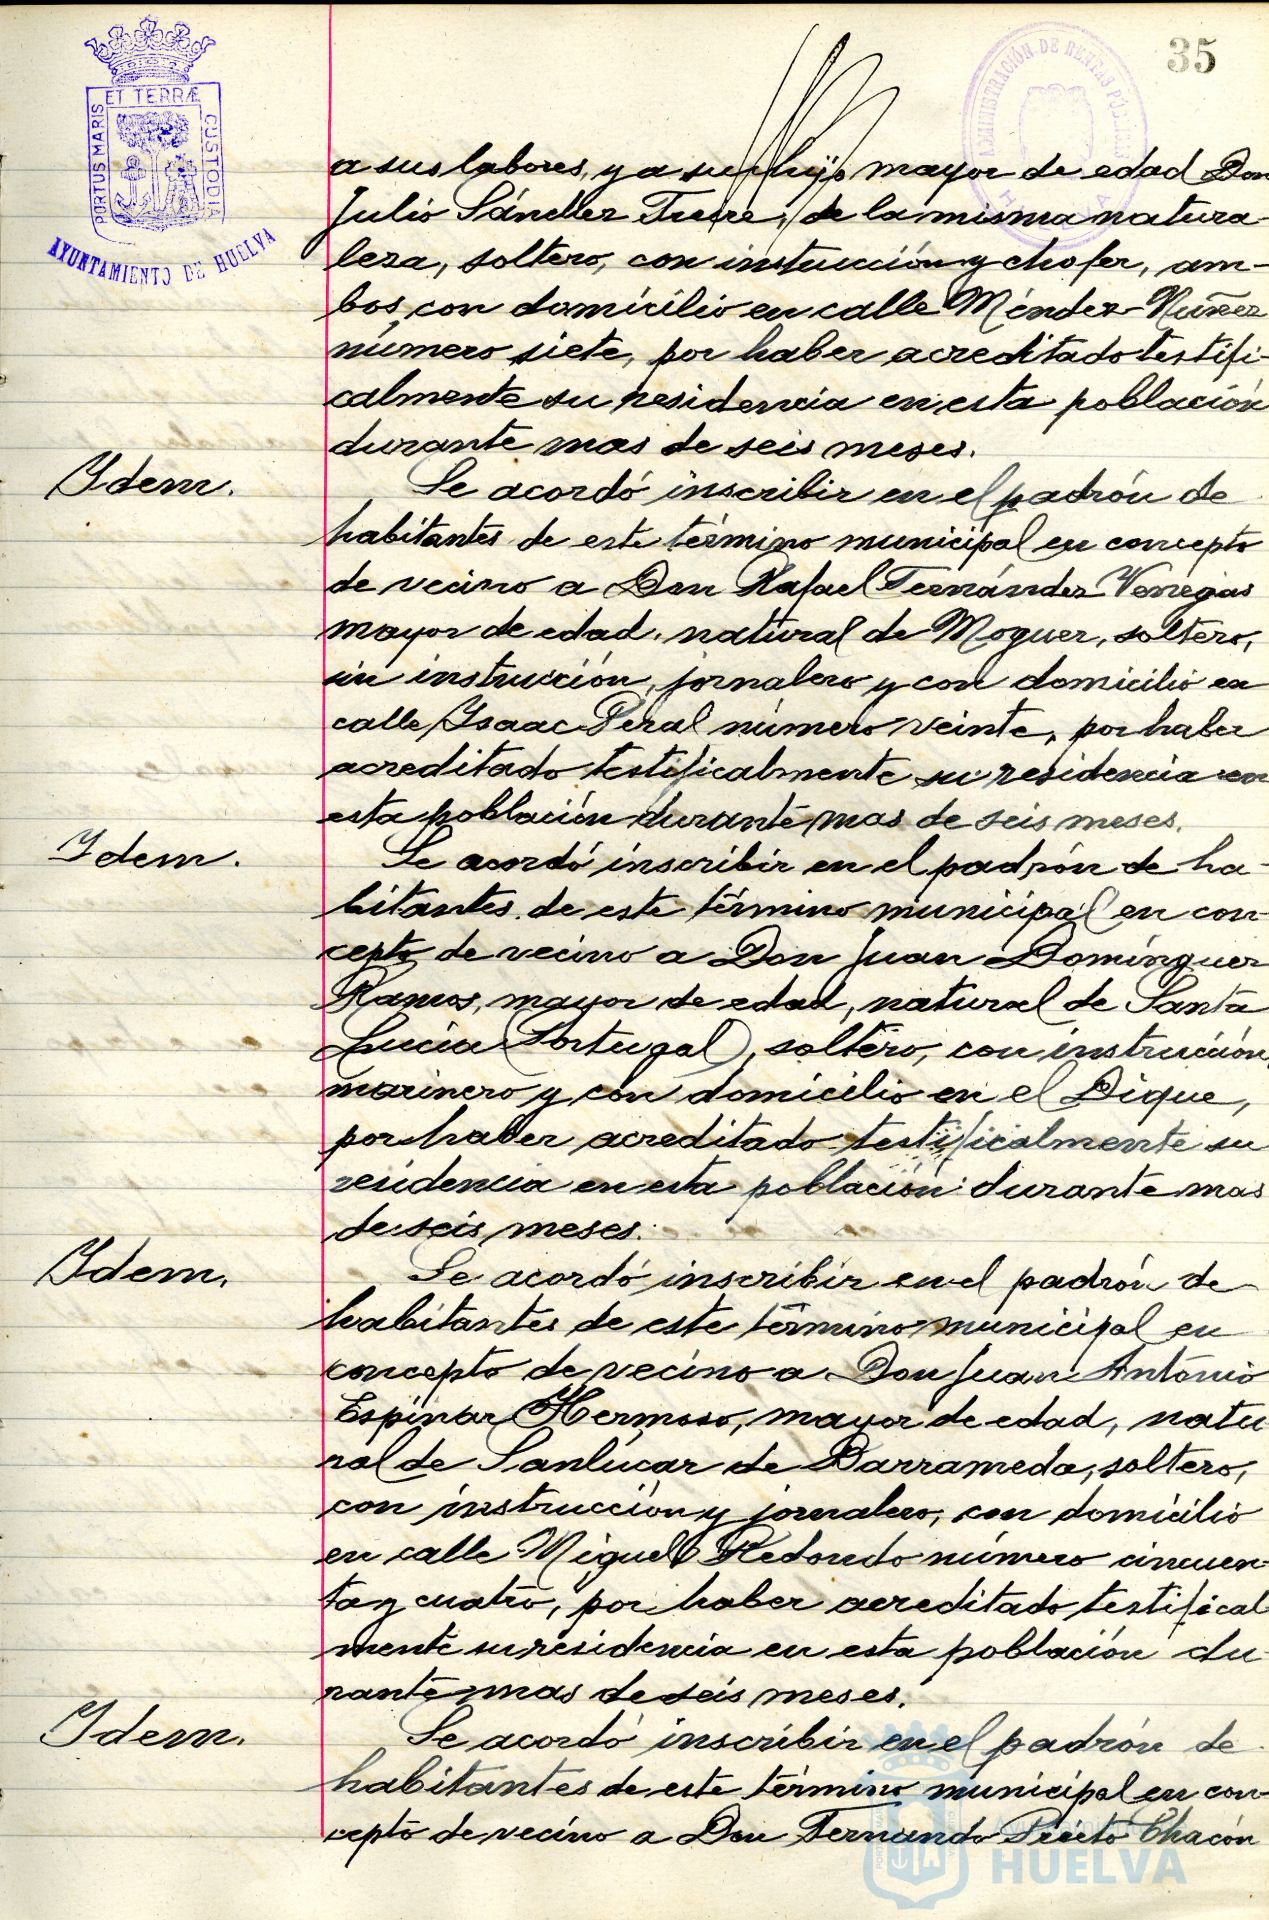 35
ET TERRÆ
PORTUS MARIS
CUSTODIA
AYUNTAMIENTO DE HUELVA
ADMINISTRACIÓN DE RENTAS PÚBLICAS
a sus labores, y a su hijo mayor de edad Don
Julio Sánchez, de la misma natura-
leza, soltero, con instrucción y chofer, am-
bos con domicilio en calle Méndez Nuñez
número siete, por haber acreditado testifi-
calmente su residencia en esta población
durante mas de seis meses.
Idem. Se acordó inscribir en el padrón de
habitantes de este término municipal en concepto
de vecino a Don Rafael Fernández Venegas
mayor de edad, natural de Moguer, soltero,
sin instrucción, jornalero y con domicilio en
calle Isaac Peral número veinte, por haber
acreditado testificalmente su residencia en
esta población durante mas de seis meses.
Idem. Se acordó inscribir en el padrón de ha-
bitantes de este término municipal en con-
cepto de vecino a Don Juan Domínguez
Ramos, mayor de edad, natural de Santa
Lucía (Portugal), soltero, con instrucción,
marinero y con domicilio en el Dique,
por haber acreditado testificalmente su
residencia en esta población durante mas
de seis meses.
Idem. Se acordó inscribir en el padrón de
habitantes de este término municipal en
concepto de vecino a Don Juan Antonio
Espinar Hermoso, mayor de edad, natu-
ral de Sanlúcar de Barrameda, soltero,
con instrucción y jornalero, con domicilio
en calle Miguel Redondo número cincuen-
ta y cuatro, por haber acreditado testifical-
mente su residencia en esta población du-
rante mas de seis meses.
Idem. Se acordó inscribir en el padrón de
habitantes de este término municipal en con-
cepto de vecino a Don Fernando Prieto Chacón
HUELVA